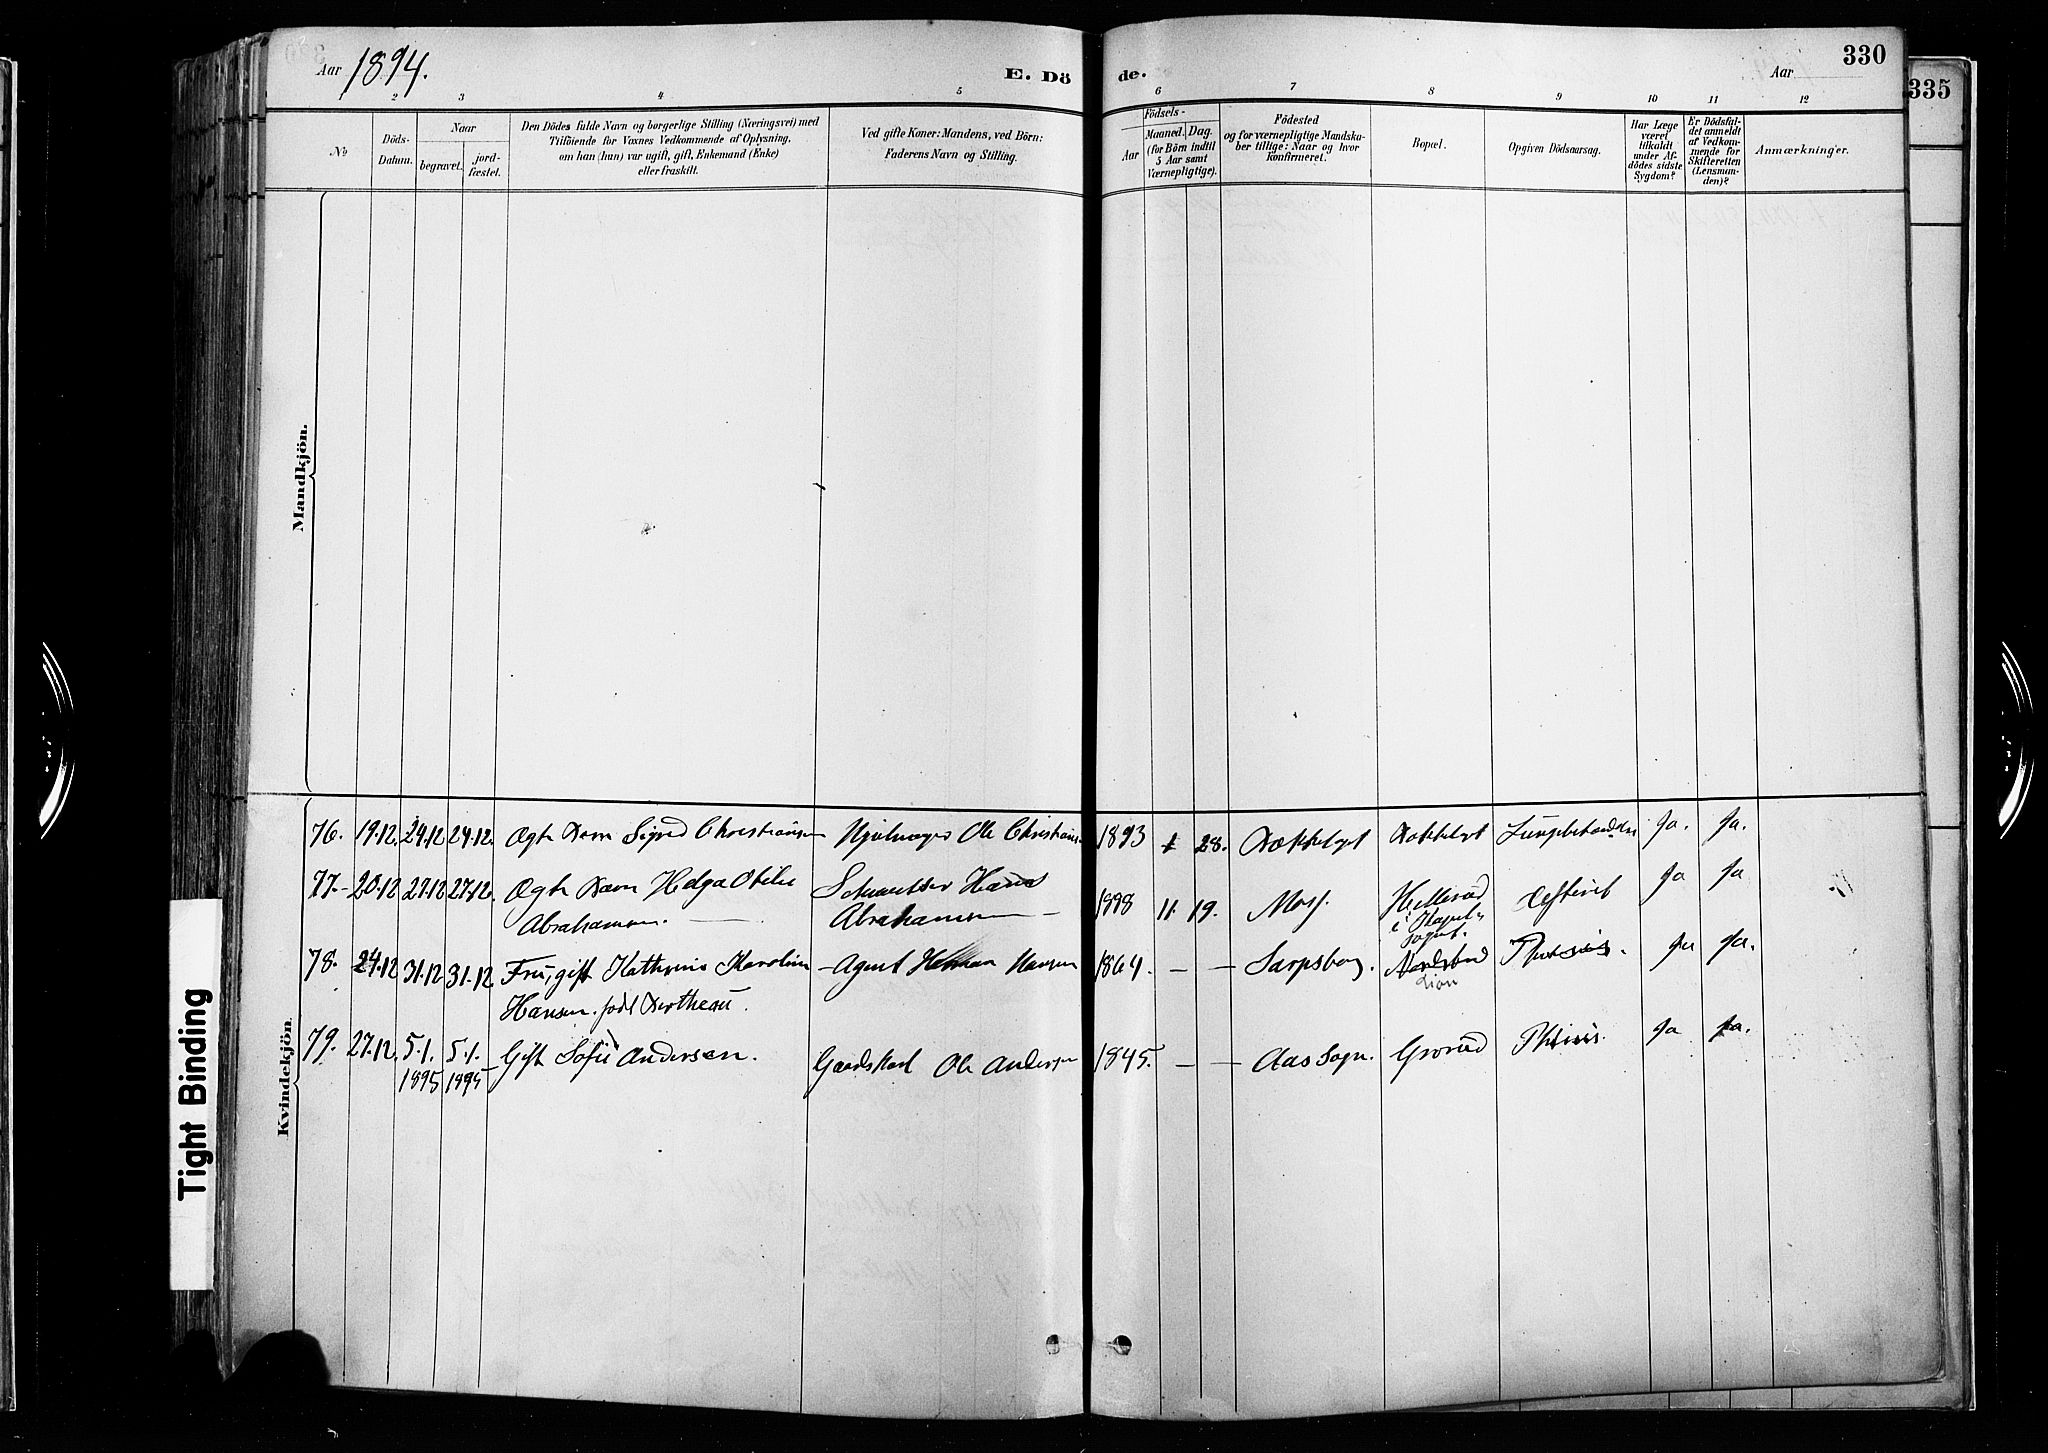 Aar 1894.
E. Dö
de.
Aar
330
335
1 2 3 4 5 6 7 8 9 10 11 12
No
Döds-
Datum.
Naar
begravet.
jord-
fæstet.
Den Dödes fulde Navn og borgerlige Stilling (Næringsvei) med
Tilföiende for Voxnes Vedkommende af Oplysning,
om han (hun) var ugift, gift, Enkemand (Enke)
eller fraskilt.
Ved gifte Koner: Mandens, ved Börn:
Faderens Navn og Stilling.
Födsels-
Aar
Maaned. Dag.
(for Börn indtil
5 Aar samt
Værnepligtige).
Födested
og for værnepligtige Mandska-
ber tillige: Naar og hvor
konfirmeret.
Bopæl.
Opgiven Dödsaarsag.
Har Læge
været
tilkaldt
under Af-
dödes sidste
Sygdom?
Er Dödsfal-
det anmeldt
af Vedkom-
mende for
Skifteretten
(Lensman-
den)?
Anmærkninger.
Mandkjön.
Kvindekjön.
76. 19.12. 24.12 24.12. Ægte Barn Sigrid Christiansen Hjulmager Ole Christians. 1893 28. Bækkelaget Bækkelaget Lungebetændelse Ja. Ja.
77. 20.12 27.12 27.12. Ægte Barn Helga Otilie Hans 11. 19. Moss. Hellerud Ja Ja
Abrahamsen. Abrahamsen i
sogn.
78. 24.12 31.12 31.12. Frue, gift Kathrine Karoline Agent Herman Hansen 1864. — — Sarpsborg. Nordstrand Ja Ja.
Hansen. født Lian
79. 27.12. 5.1. 5.1. Gift Sofie Andersen. Gaardskarl Ole Andersen 1845. — — Aas Sogn. Grorud Phtisis. Ja Ja.
1895 1895
Tight Binding